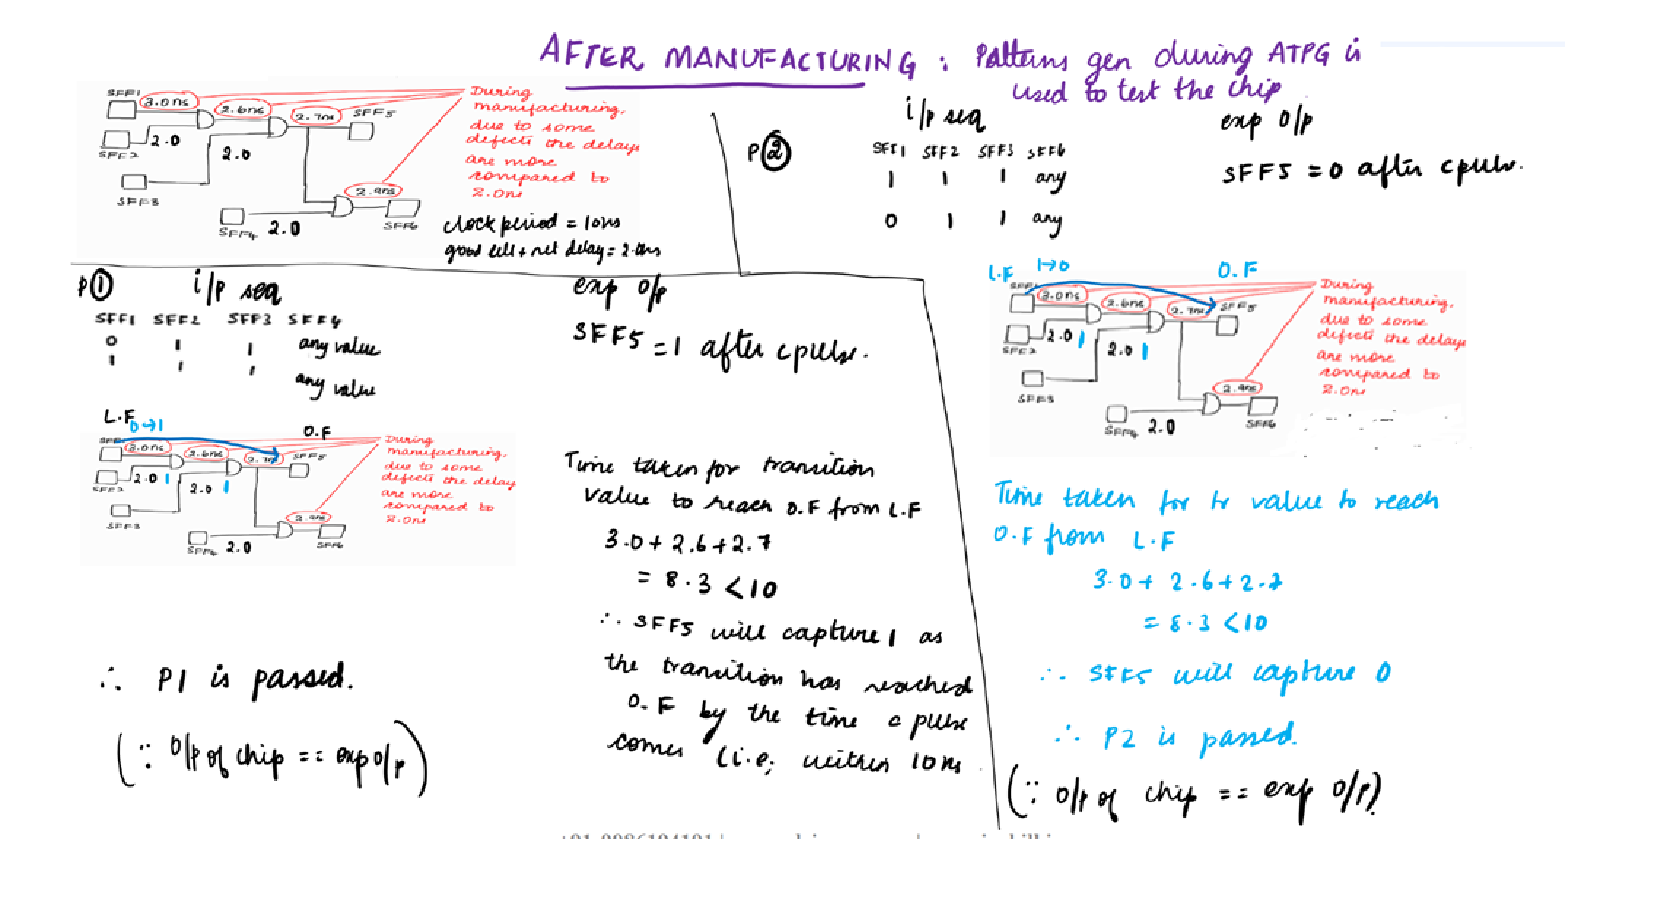 AFTER MANUFACTURING : Patterns gen during ATPG is
used to test the chip
SFF1 3.0ns 2.6ns 2.7ns SFF5
SFF2 2.0
2.0
SFF3
SFF4 2.0 2.9ns SFF6
During
manufacturing,
due to some
defects the delays
are more
compared to
2.0ns
clock period = 10ns
good cell + net delay = 2.0ns
P② i/p seq exp o/p
SFF1 SFF2 SFF3 SFF4
1 1 1 any
0 1 1 any
SFF5 = 0 after cpulse.
P① i/p seq exp o/p
SFF1 SFF2 SFF3 SFF4
0 1 1 any value
1 1 1 any value
SFF5 = 1 after cpulse.
L.F
0→1
O.F
3.0ns 2.6ns 2.7ns SFF5
SFF2 2.0 1
2.0 1
SFF3
SFF4 2.0 2.9ns SFF6
During
manufacturing,
due to some
defects the delays
are more
compared to
2.0ns
Time taken for transition
value to reach O.F from L.F
3.0 + 2.6 + 2.7
= 8.3 < 10
∴ SFF5 will capture 1 as
the transition has reached
O.F by the time c pulse
comes (i.e; within 10ns
∴ P1 is passed.
(∵ o/p of chip == exp o/p)
L.F 1→0 O.F
3.0ns 2.6ns 2.7ns SFF5
SFF2 2.0 1
2.0 1
SFF3
SFF4 2.0 2.9ns SFF6
During
manufacturing,
due to some
defects the delays
are more
compared to
2.0ns
Time taken for tr value to reach
O.F from L.F
3.0 + 2.6 + 2.7
= 8.3 < 10
∴ SFF5 will capture 0
∴ P2 is passed.
(∵ o/p of chip == exp o/p)